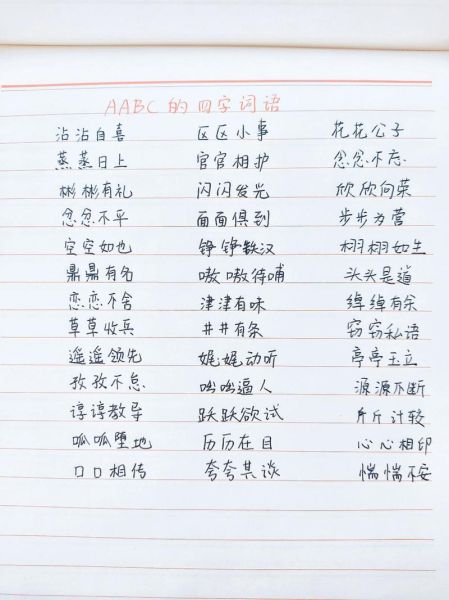 AABC的四字词语
沾沾自喜 区区小事 花花公子
蒸蒸日上 官官相护 忿忿不忘
彬彬有礼 闪闪发光 欣欣向荣
忿忿不平 面面俱到 步步为营
空空如也 铮铮铁汉 栩栩如生
鼎鼎有名 嗷嗷待哺 头头是道
恋恋不舍 津津有味 绰绰有余
草草收兵 井井有条 窃窃私语
遥遥领先 娓娓动听 亭亭玉立
孜孜不怠 咄咄逼人 源源不断
谆谆教导 跃跃欲试 斤斤计较
呱呱堕地 历历在目 心心相印
口口相传 夸夸其谈 惴惴不安